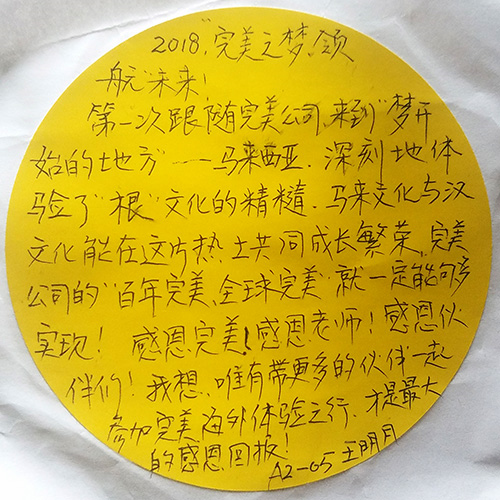 2018,“完美之梦,领
航”未来!
第一次跟随完美公司,来到“梦开
始的地方”——马来西亚.深刻地体
验了“根”文化的精髓.马来文化与汉
文化能在这片热土共同成长繁荣,完美
公司的“百年完美,全球完美”就一定能够
实现!感恩完美!感恩老师!感恩伙
伴们!我想,唯有带更多的伙伴一起
参加完美海外体验之行,才是最大
的感恩回报!
A2-05 王明月